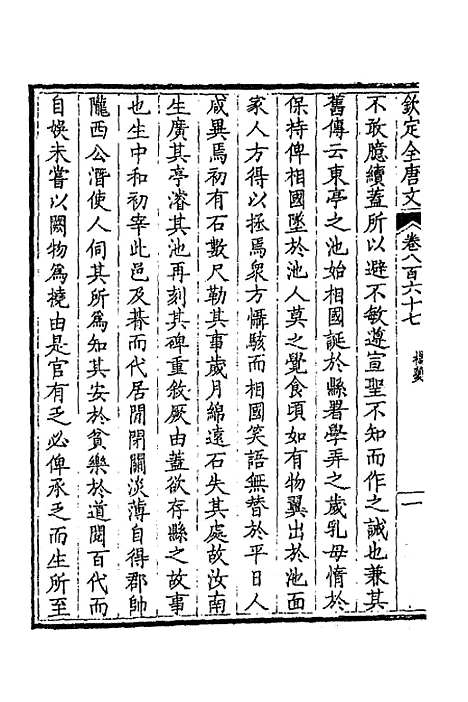 欽定全唐文 卷八百六十七 楊夔 一
不敢臆續蓋所以避不敏遵宣聖不知而作之誡也兼其
舊傳云東亭之池始相國誕於縣署學弄之歲乳母惰於
保持俾相國墜於池人莫之覺食頃如有物翼出於池面
家人方得以拯焉衆方懾駭而相國笑語無替於平日人
咸異焉初有石數尺勒其事歲月綿遠石失其處故汝南
生廣其亭濬其池再刻其碑重敘厥由蓋欲存縣之故事
也生中和初宰此邑及朞而代居閒閉關淡薄自得郡帥
隴西公潛使人伺其所爲知其安於貧樂於道閱百代而
自娛未嘗以闕物爲撓由是官有乏必俾承乏而生所至